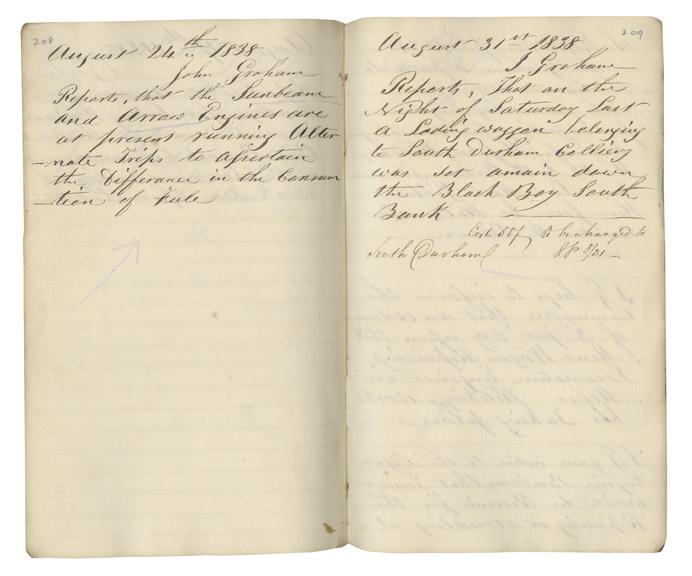 208
August 24th 1838
John Graham
Reports, that the Sunbeam
and Arrow Engines are
at present running Alter-
-nate Trips to Assertain
the Differance in the Consum
-tion of Fule
209
August 31st 1838
J Graham
Reports, That on the
Night of Saturday Last
a Loding waggon belonging
to South Durham Colliery
was set amain down
the Black Boy South
Bank
Cost to be charged to
South Durham